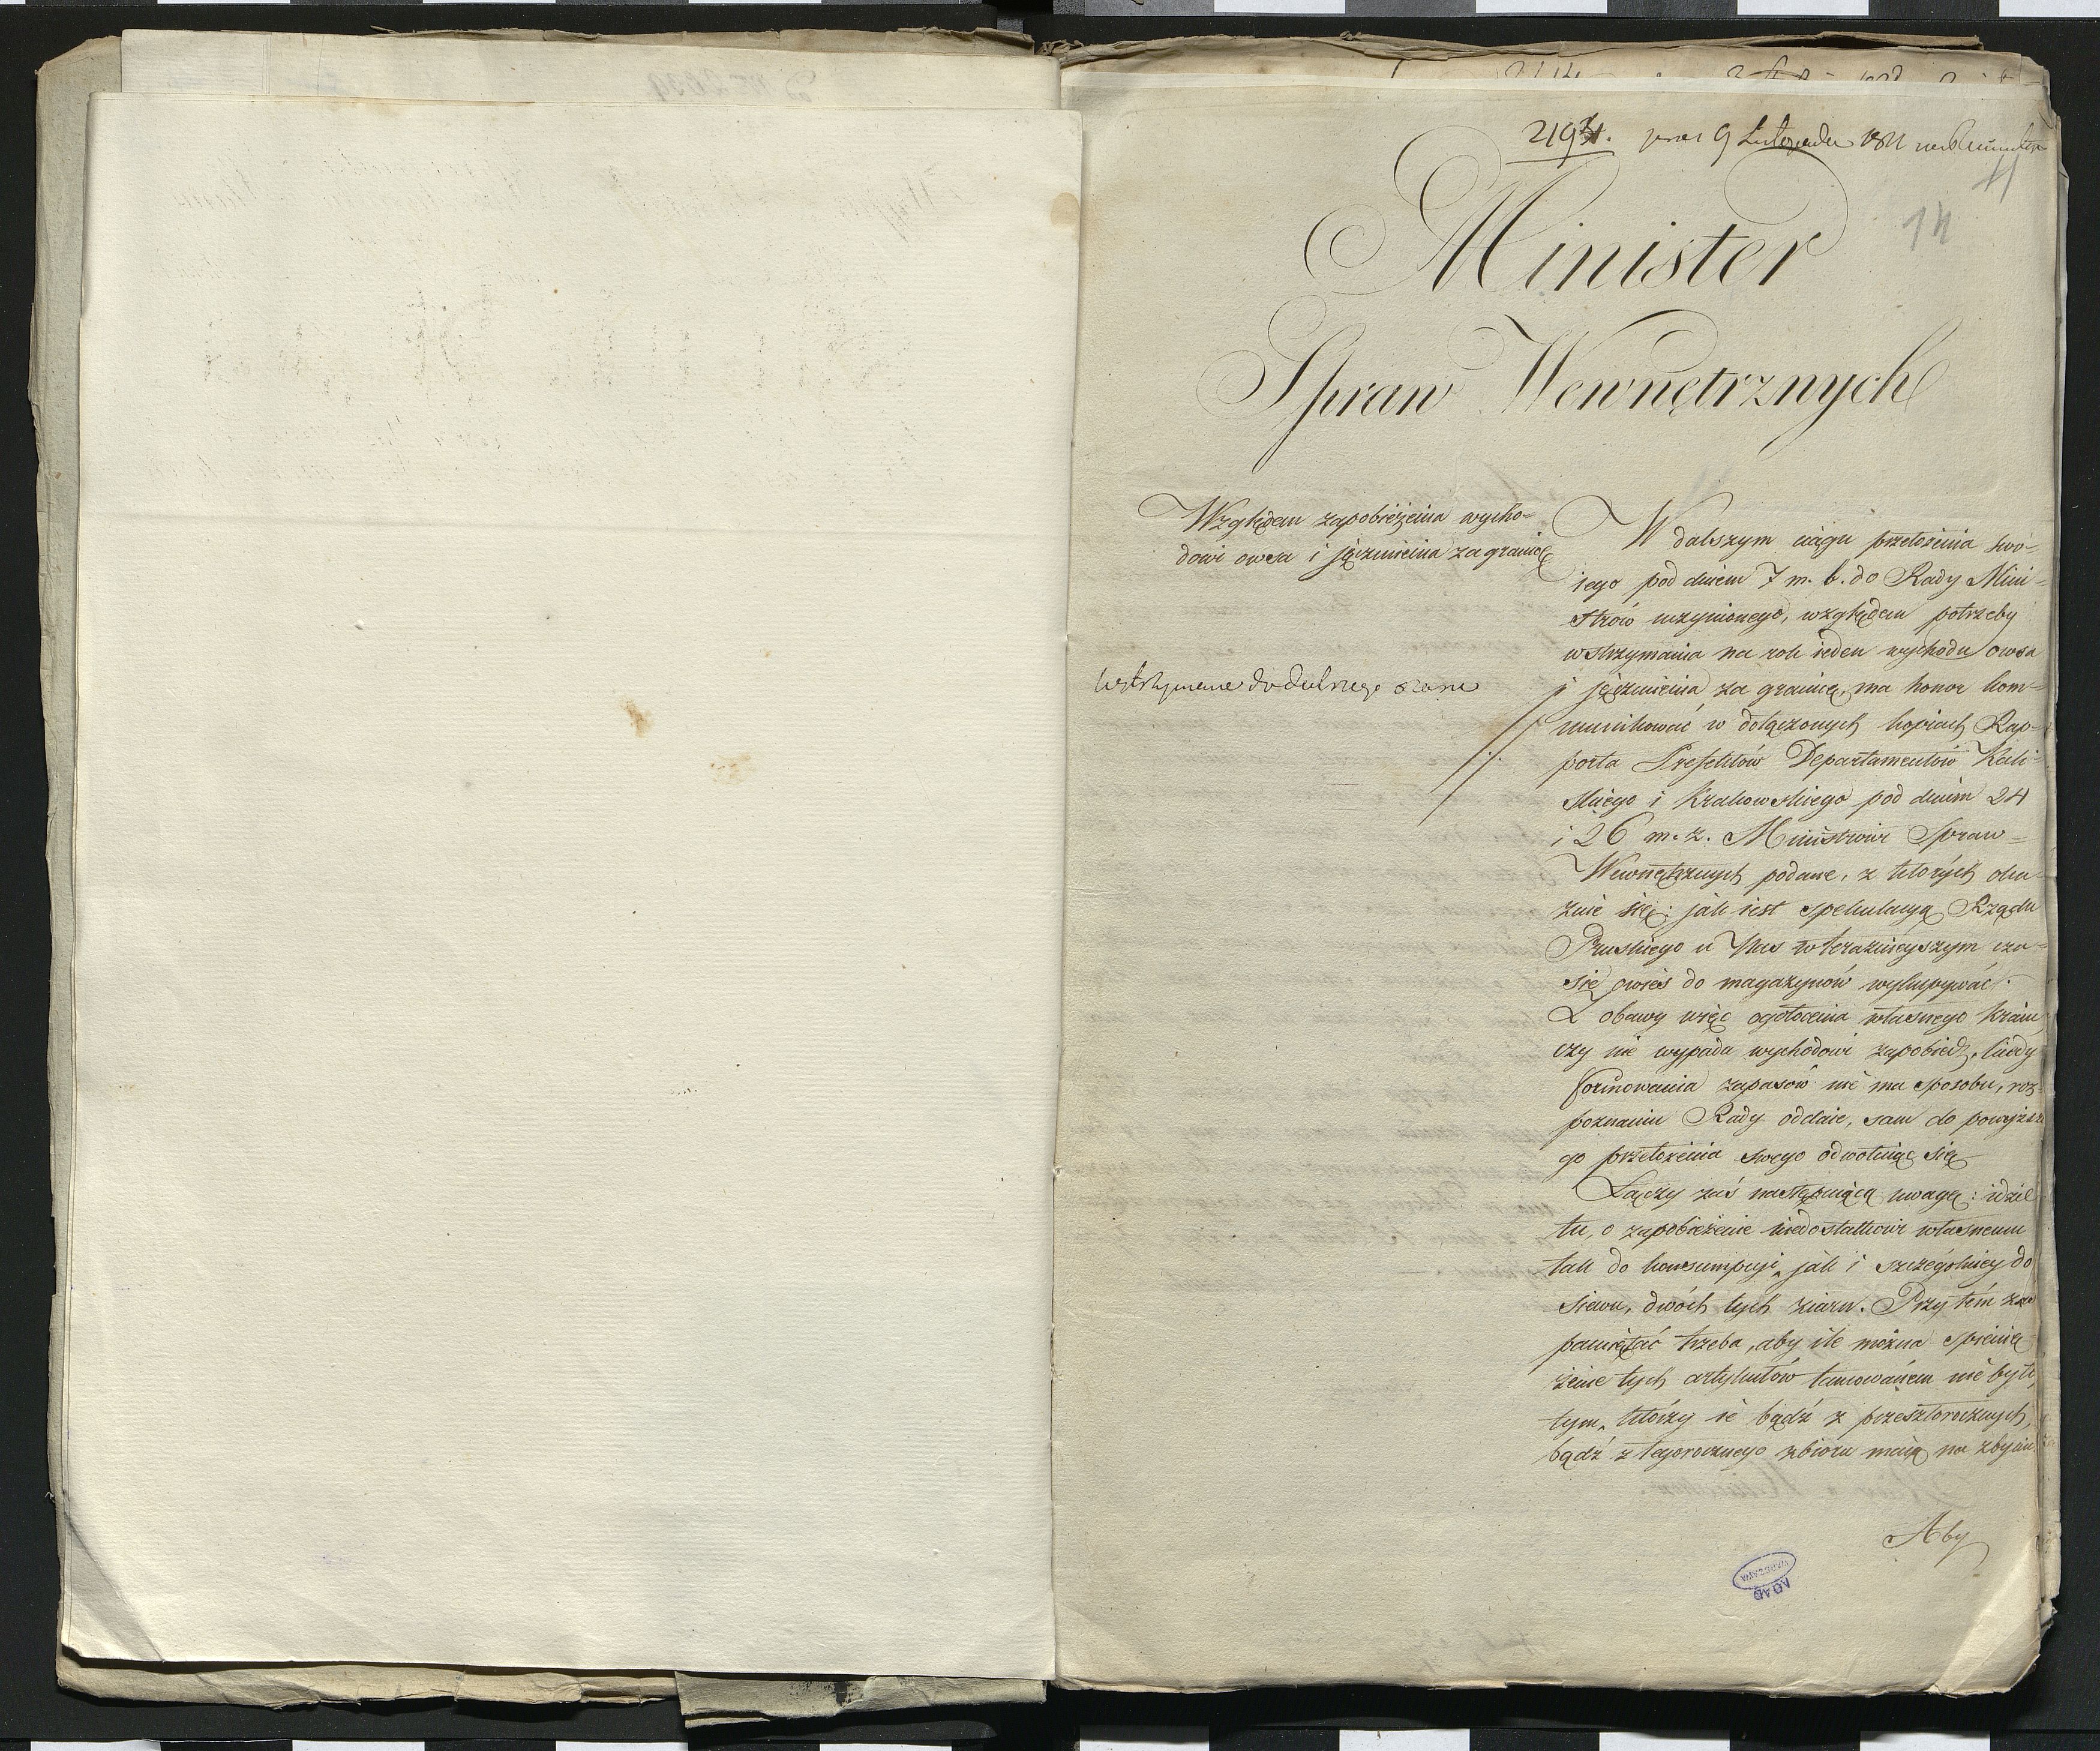 2193. pres 9 Listopada 1811
11
14
Minister
Spraw Wewnętrznych
Względem zapobieżenia wycho=
dowi owsa i jęczmienia zagranicę
Wstrzymane do dalszego czasu
W dalszym ciągu przełożenia swo=
iego pod dniem 7 m. b. do Rady Mini=
strów uczynionego, względem potrzeby
wstrzymania na rok ieden wychodu owsa
i jęczmienia za granicę, ma honor kom=
munikować w dołączonych kopiach Rap=
porta Prefektów Departamentów Kali=
skiego i Krakowskiego pod dniem 24
i 26 m. z. Ministrowi Spraw=
Wewnętrznych podane, z których oka=
zuie się: jak iest spekulacyą Rządu
Pruskiego u Nas w teraznieyszym cza=
sie owies do magazynów wykupywać.
Z obawy więc ogołocenia własnego kraiu,
czy nie wypada wychodowi zapobiedz, kiedy
formowania zapasów nie ma sposobu, roz=
poznaniu Rady oddaie, sam do powyższe
go przełożenia swego odwołuiąc się
Łączy zaś następuiącą uwagę: idzie
tu, o zapobieżenie niedostatkowi własnemu
tak do konsumpcyi, jak i szczególniey do
siewu, dwóch tych ziarn. Przytém za=
pamiętać trzeba, aby ile można spienię=
żenie tych artykułów tamowaném nie było,
tym, którzy ie bądź z przeszłorocznych,
bądź z tegorocznego zbioru maią na zbyciu
Aby
AGAD
WARSZAWA